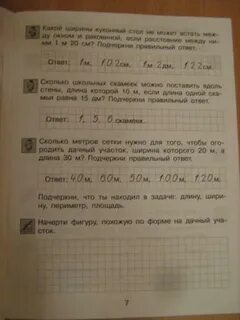 Какой ширины кухонный стол не может встать меж-
ду окном и раковиной, если расстояние между ни-
ми 1 м 20 см? Подчеркни правильный ответ.
Ответ: 1м, 102см, 1м 2дм, 122см.
Сколько школьных скамеек можно поставить вдоль
стены, длина которой 10 м, если длина одной ска-
мьи равна 15 дм? Подчеркни правильный ответ.
Ответ: 1, 5, 6 скамеек.
Сколько метров сетки нужно для того, чтобы ого-
родить дачный участок, ширина которого 20 м, а
длина 30 м? Подчеркни правильный ответ.
Ответ: 40м, 60м, 50м, 100м, 120м.
Подчеркни, что ты находил в задаче: длину, ши-
рину, периметр, площадь.
Начерти фигуру, похожую по форме на дачный учас-
ток.
7